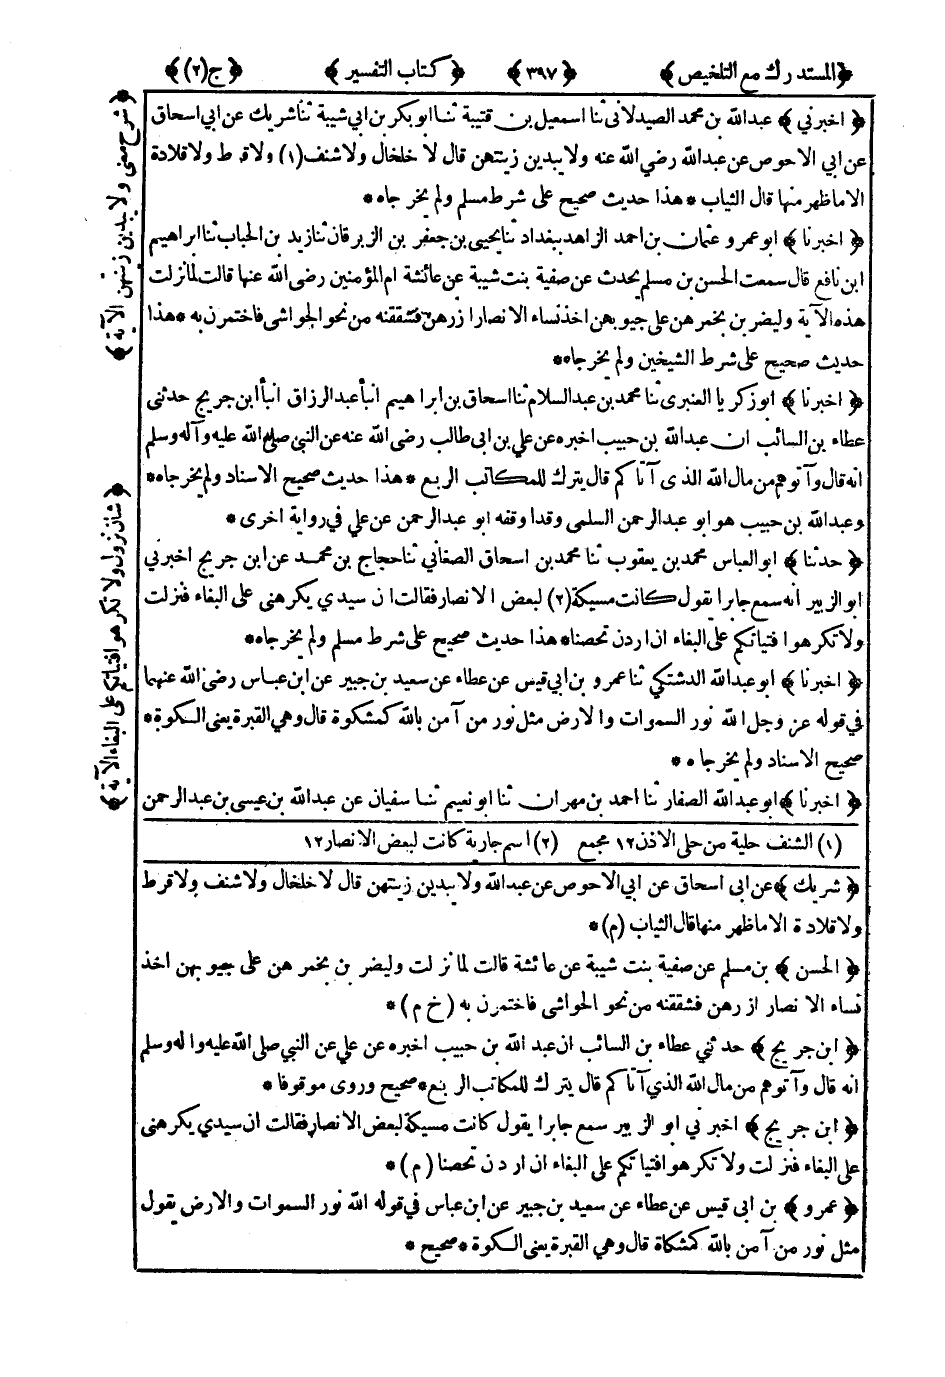 ﴿المستدرك مع التلخيص﴾ ﴿٣٩٧﴾ ﴿كتاب التفسير﴾ ﴿ج(٢)﴾
﴿شرح معنى ولا يبدين زينتهن الآية﴾
﴿شان نزول ولا تكرهوا فتياتكم على البغاء الآية﴾
﴿اخبرني﴾ عبدالله بن محمد الصيدلانى ثنا اسمعيل بن قتيبة ثنا ابوبكر بن ابي شيبة ثنا شريك عن ابي اسحاق
عن ابي الاحوص عن عبدالله رضي الله عنه ولا يبدين زينتهن قال لا خلخال ولا شنف(١) ولا قرط ولا قلادة
الا ما ظهر منها قال الثياب * هذا حديث صحيح على شرط مسلم ولم يخرجاه *
﴿اخبرنا﴾ ابو عمرو عثمان بن احمد الزاهد ببغداد ثنا يحيى بن جعفر بن الزبرقان ثنا زيد بن الحباب ثنا ابراهيم
ابن نافع قال سمعت الحسن بن مسلم يحدث عن صفية بنت شيبة عن عائشة ام المؤمنين رضى الله عنها قالت لما نزلت
هذه الآية وليضربن بخمرهن على جيوبهن اخذ نساء الانصار ازرهن فشققنه من نحو الحواشى فاختمرن به * هذا
حديث صحيح على شرط الشيخين ولم يخرجاه *
﴿اخبرنا﴾ ابوزكريا العنبرى ثنا محمد بن عبدالسلام ثنا اسحاق بن ابراهيم انبأ عبدالرزاق انبأ ابن جريج حدثني
عطاء بن السائب ان عبدالله بن حبيب اخبره عن علي بن ابى طالب رضى الله عنه عن النبي صلى الله عليه وآله وسلم
انه قال وآتوهم من مال الله الذى آتاكم قال يترك للمكاتب الربع * هذا حديث صحيح الاسناد ولم يخرجاه *
وعبدالله بن حبيب هو ابو عبدالرحمن السلمى وقد اوقفه ابو عبدالرحمن عن علي في رواية اخرى *
﴿حدثنا﴾ ابوالعباس محمد بن يعقوب ثنا محمد بن اسحاق الصغاني ثنا حجاج بن محمد عن ابن جريج اخبرني
ابوالزبير انه سمع جابرا يقول كانت مسيكة(٢) لبعض الانصار فقالت ان سيدي يكرهنى على البغاء فنزلت
ولا تكرهوا فتياتكم على البغاء ان اردن تحصنا * هذا حديث صحيح على شرط مسلم ولم يخرجاه *
﴿اخبرنا﴾ ابو عبدالله الدشتكي ثنا عمرو بن ابي قيس عن عطاء عن سعيد بن جبير عن ابن عباس رضى الله عنهما
في قوله عز وجل الله نور السموات والارض مثل نور من آمن بالله كمشكوة قال وهي القبرة يعنى الكوة *
صحيح الاسناد ولم يخرجاه *
﴿اخبرنا﴾ ابو عبدالله الصفار ثنا احمد بن مهران ثنا ابو نعيم ثنا سفيان عن عبدالله بن عيسى بن عبدالرحمن
(١) الشنف حلية من حلى الاذن ١٢ مجمع (٢) اسم جارية كانت لبعض الانصار ١٢
﴿شريك﴾ عن ابى اسحاق عن ابي الاحوص عن عبدالله ولا يبدين زينتهن قال لا خلخال ولا شنف ولا قرط
ولا قلادة الا ما ظهر منها قال الثياب (م) *
﴿الحسن﴾ بن مسلم عن صفية بنت شيبة عن عائشة قالت لما نزلت وليضربن بخمرهن على جيوبهن اخذ
نساء الانصار ازرهن فشققنه من نحو الحواشى فاختمرن به (خ م) *
﴿ابن جريج﴾ حدثني عطاء بن السائب ان عبدالله بن حبيب اخبره عن علي عن النبي صلى الله عليه واله وسلم
انه قال وآتوهم من مال الله الذي آتاكم قال يترك للمكاتب الربع * صحيح وروى موقوفا *
﴿ابن جريج﴾ اخبرني ابو الزبير سمع جابرا يقول كانت مسيكة لبعض الانصار فقالت ان سيدي يكرهنى
على البغاء فنزلت ولا تكرهوا فتياتكم على البغاء ان اردن تحصنا (م) *
﴿عمرو﴾ بن ابى قيس عن عطاء عن سعيد بن جبير عن ابن عباس في قوله الله نور السموات والارض يقول
مثل نور من آمن بالله كمشكاة قال وهي القبرة يعنى الكوة * صحيح *